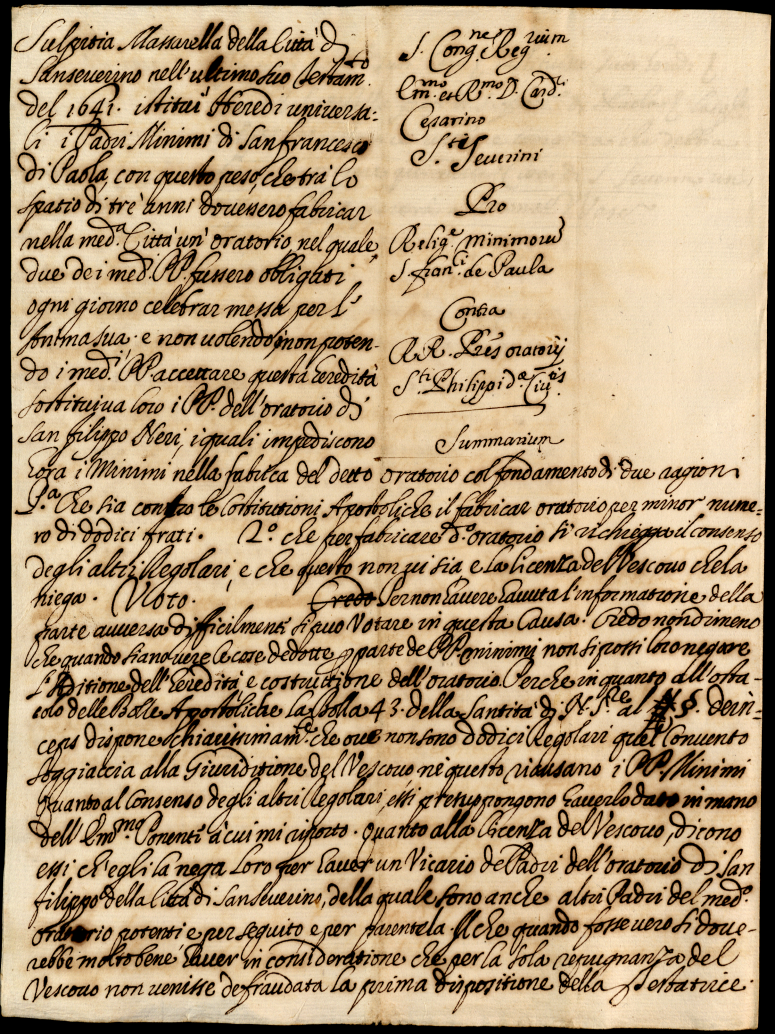 Sulpitia Massarella della Città di
Sanseverino nell'ultimo suo testam.to
del 1641. istituì Heredi universa-
li i Padri Minimi di San francesco
di Paola, con questo peso, che trà lo
spatio di trè anni dovessero fabricar
nella med.a Città un' oratorio, nel quale
due de i med.i PP. fussero obligati
ogni giorno celebrar messa per l'
Anima sua. e non volendo, ò non poten-
do i med.i PP. accettare questa heredità
sostituiva loro i PP. dell'oratorio di
San filippo Neri, i quali impediscono
S. Cong.ne Reg.rium
Em.mo et R.mo D. Card.li
Cesarino
S.ti Severini
Pro
Relig.e Minimorũ
S. fran.ci de Paula
Contra
RR. Prẽs oratorij
S.ti Philippi d.æ Civ.tis
Summarium
hora i Minimi nella fabrica del detto oratorio col fondamento di due ragioni
P.a Che sia contro le Costitutioni Apostoliche il fabricar oratorio per minor nume-
ro di dodici frati. 2.o che per fabricare d.o oratorio si richiegga il consenso
degli altri Regolari, e che questo non vi sia e la licenza del Vescovo che la
niega. Voto. Credo Per non havere havuta l'informatione della
parte avversa difficilmente si può Votare in questa Causa. Credo nondimeno
che quando siano vere le cose dedotte p parte de PP. minimi non si possi loro negare
l'Aditione dell'heredità e costruttione dell'oratorio. Perche in quanto all'osta-
colo delle Bolle Apostoliche la Bolla 43. della Santità di N. S.re al §. dein-
ceps dispone chiarissimam.te che ove non sono dodici Regolari quel Convento
soggiaccia alla Giuriditione del Vescovo ne questo ricusano i PP. Minimi
Quanto al Consenso degli altri Regolari, essi presuppongono haverlo dato in mano
dell'Em.mo Ponente à cui mi riporto. Quanto alla licenza del Vescovo, dicono
essi ch'egli la nega loro per haver un Vicario de Padri dell'oratorio di San
filippo della Città di San Severino, della quale sono anche altri Padri del med.o
oratorio potenti e per seguito e per parentela Il che quando fosse vero si dove-
rebbe molto bene haver in consideratione che per la sola repugnanza del
Vescovo non venisse defraudata la prima dispositione della Testatrice.